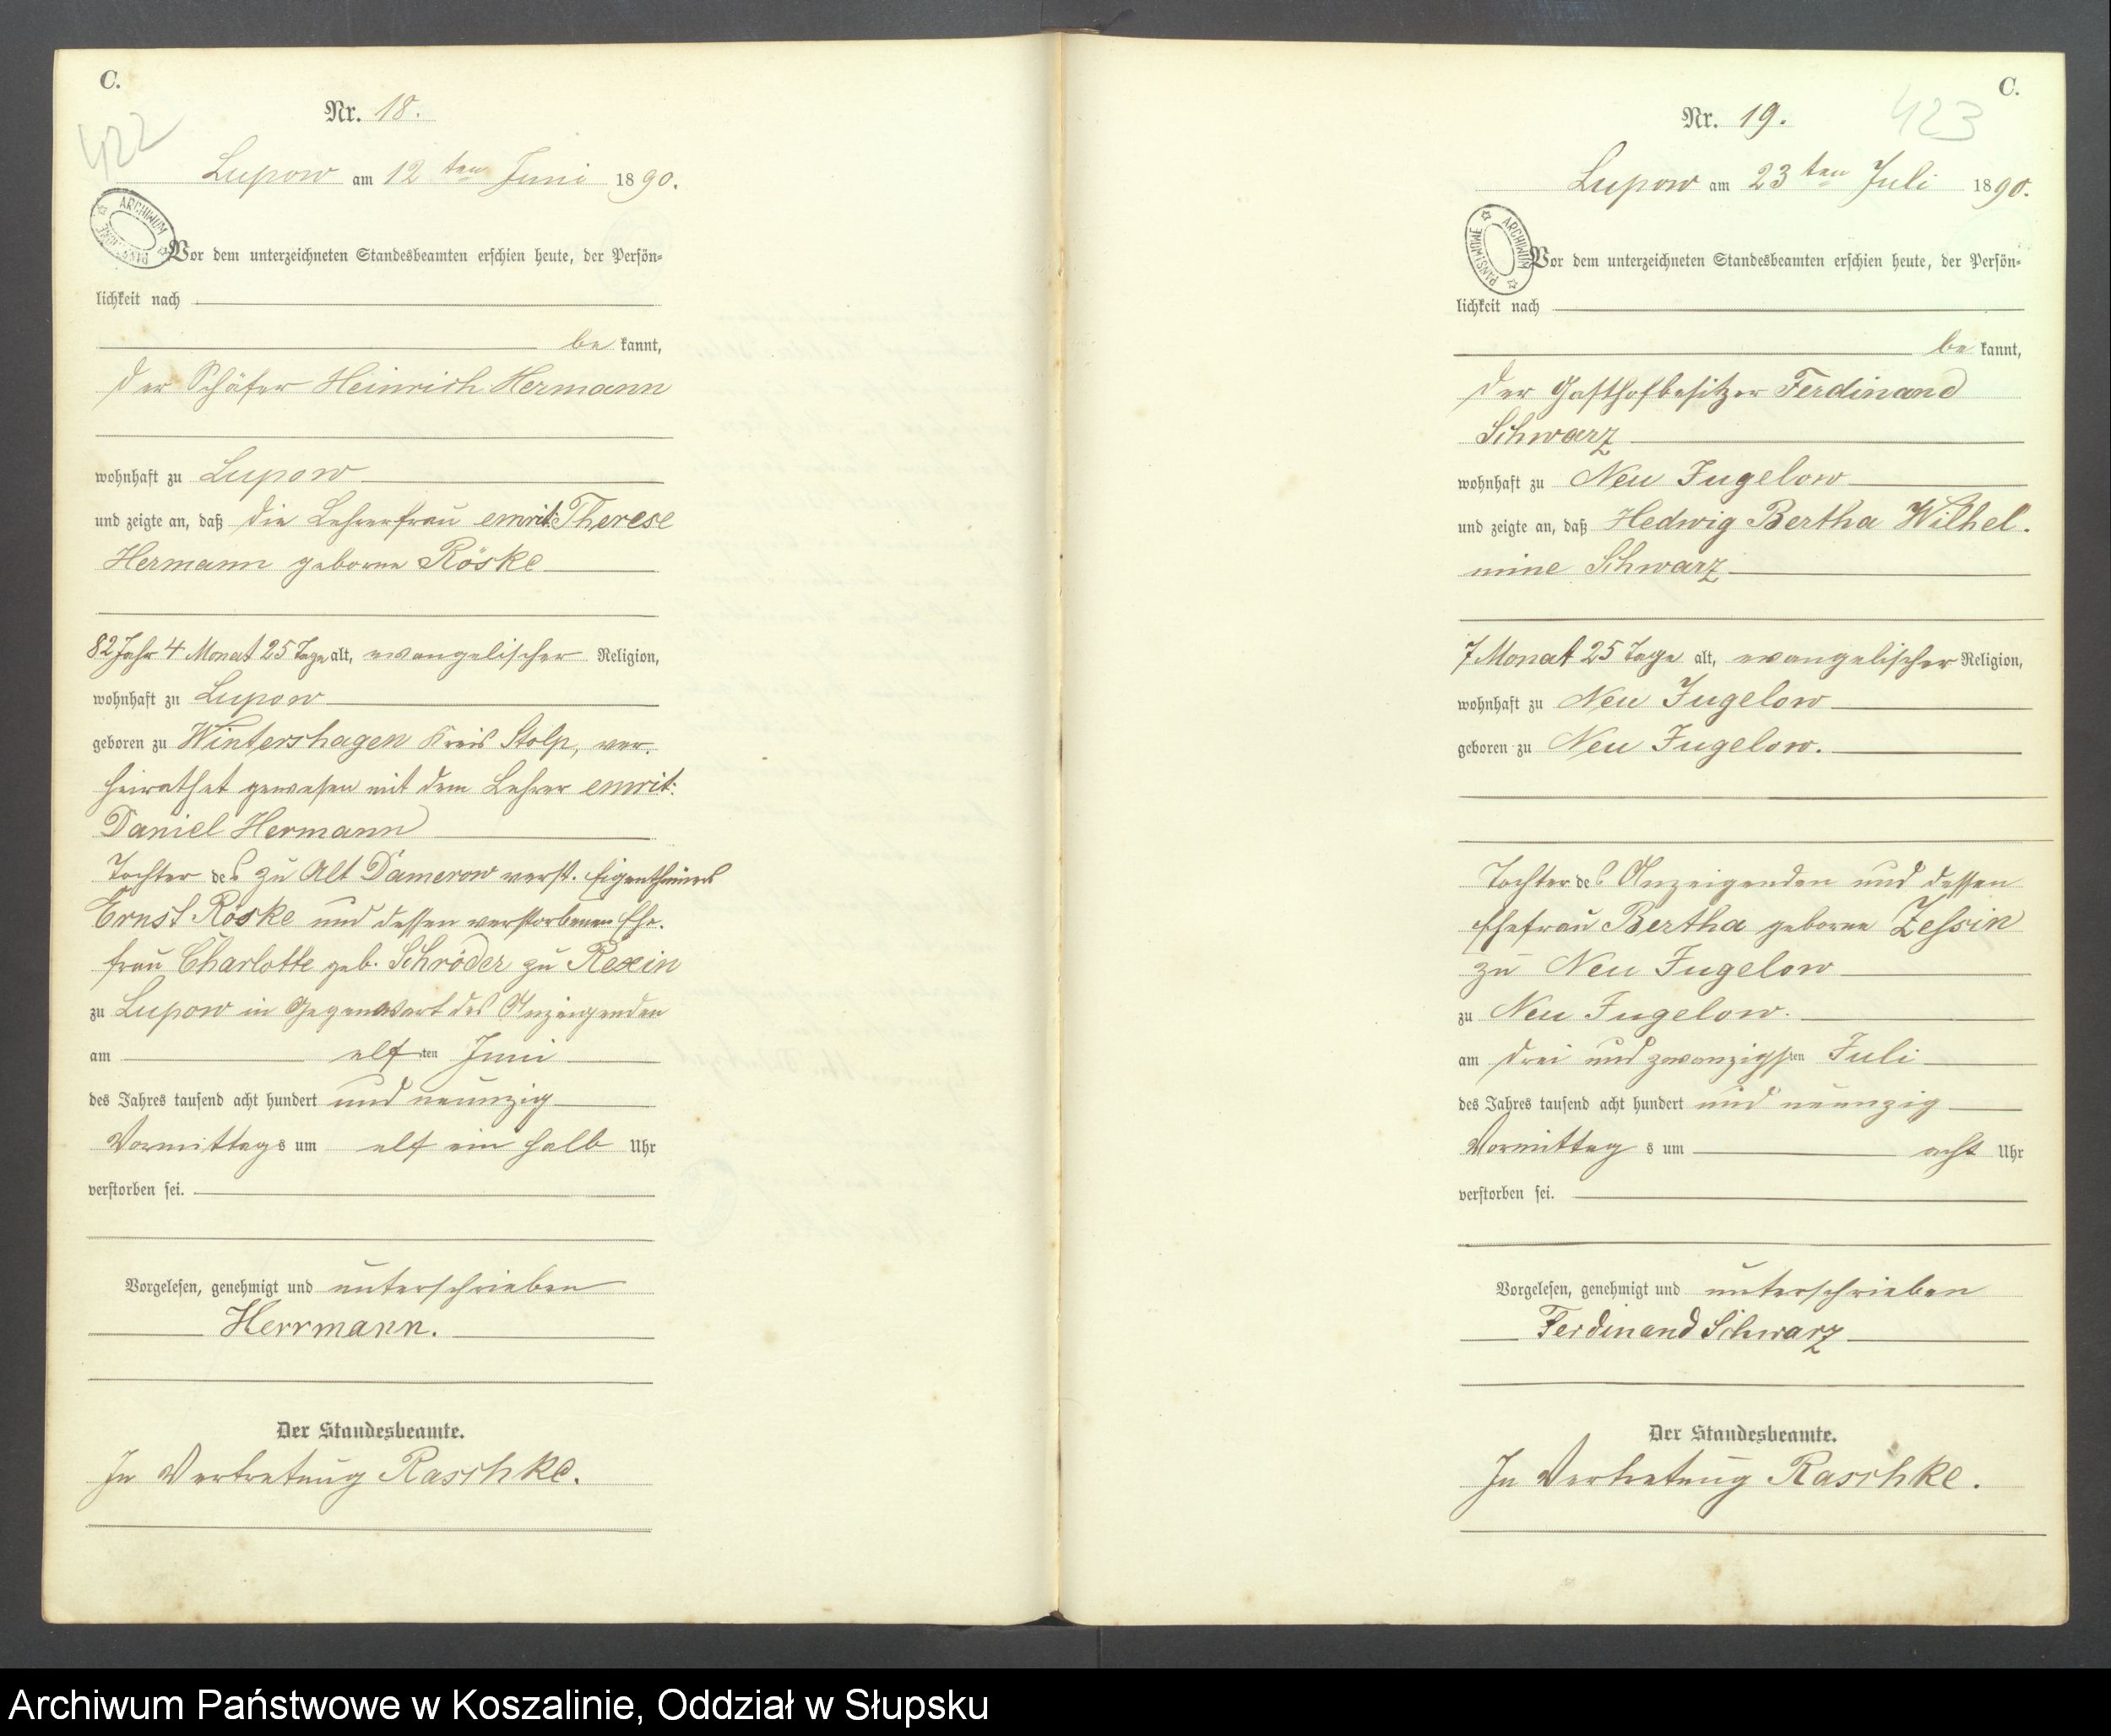 C.
422
Nr. 18.
Lupow am 12 ten Juni 1890.
ARCHIWUM PAŃSTWOWE
Vor dem unterzeichneten Standesbeamten erschien heute, der Persön-
lichkeit nach
be kannt,
der Schäfer Heinrich Hermann
wohnhaft zu Lupow
und zeigte an, daß die Lehrerfrau emrit: Therese
Hermann geborne Röske
82 Jahr 4 Monat 25 Tage alt, evangelischer Religion,
wohnhaft zu Lupow
geboren zu Wintershagen Kreis Stolp, ver-
heirathet gewesen mit dem Lehrer emrit:
Daniel Hermann
Tochter des zu Alt Damerow verst. Eigenthümers
Ernst Röske und dessen verstorbenen Ehe-
frau Charlotte geb. Schröder zu Rexin
zu Lupow in Gegenwart des Anzeigenden
am elf ten Juni
des Jahres tausend acht hundert und neunzig
Vormittags um elf ein halb Uhr
verstorben sei.
Vorgelesen, genehmigt und unterschrieben
Herrmann.
Der Standesbeamte.
In Vertretung Raschke.
C.
423
Nr. 19.
Lupow am 23 ten Juli 1890.
ARCHIWUM PAŃSTWOWE
Vor dem unterzeichneten Standesbeamten erschien heute, der Persön-
lichkeit nach
be kannt,
der Gasthofbesitzer Ferdinand
Schwarz
wohnhaft zu Neu Jugelow
und zeigte an, daß Hedwig Bertha Wilhel-
mine Schwarz
7 Monat 25 Tage alt, evangelischer Religion,
wohnhaft zu Neu Jugelow
geboren zu Neu Jugelow.
Tochter des Anzeigenden und dessen
Ehefrau Bertha geborne Zessin
zu Neu Jugelow
zu Neu Jugelow.
am drei und zwanzigsten Juli
des Jahres tausend acht hundert und neunzig
Vormittag s um acht Uhr
verstorben sei.
Vorgelesen, genehmigt und unterschrieben
Ferdinand Schwarz
Der Standesbeamte.
In Vertretung Raschke.
Archiwum Państwowe w Koszalinie, Oddział w Słupsku